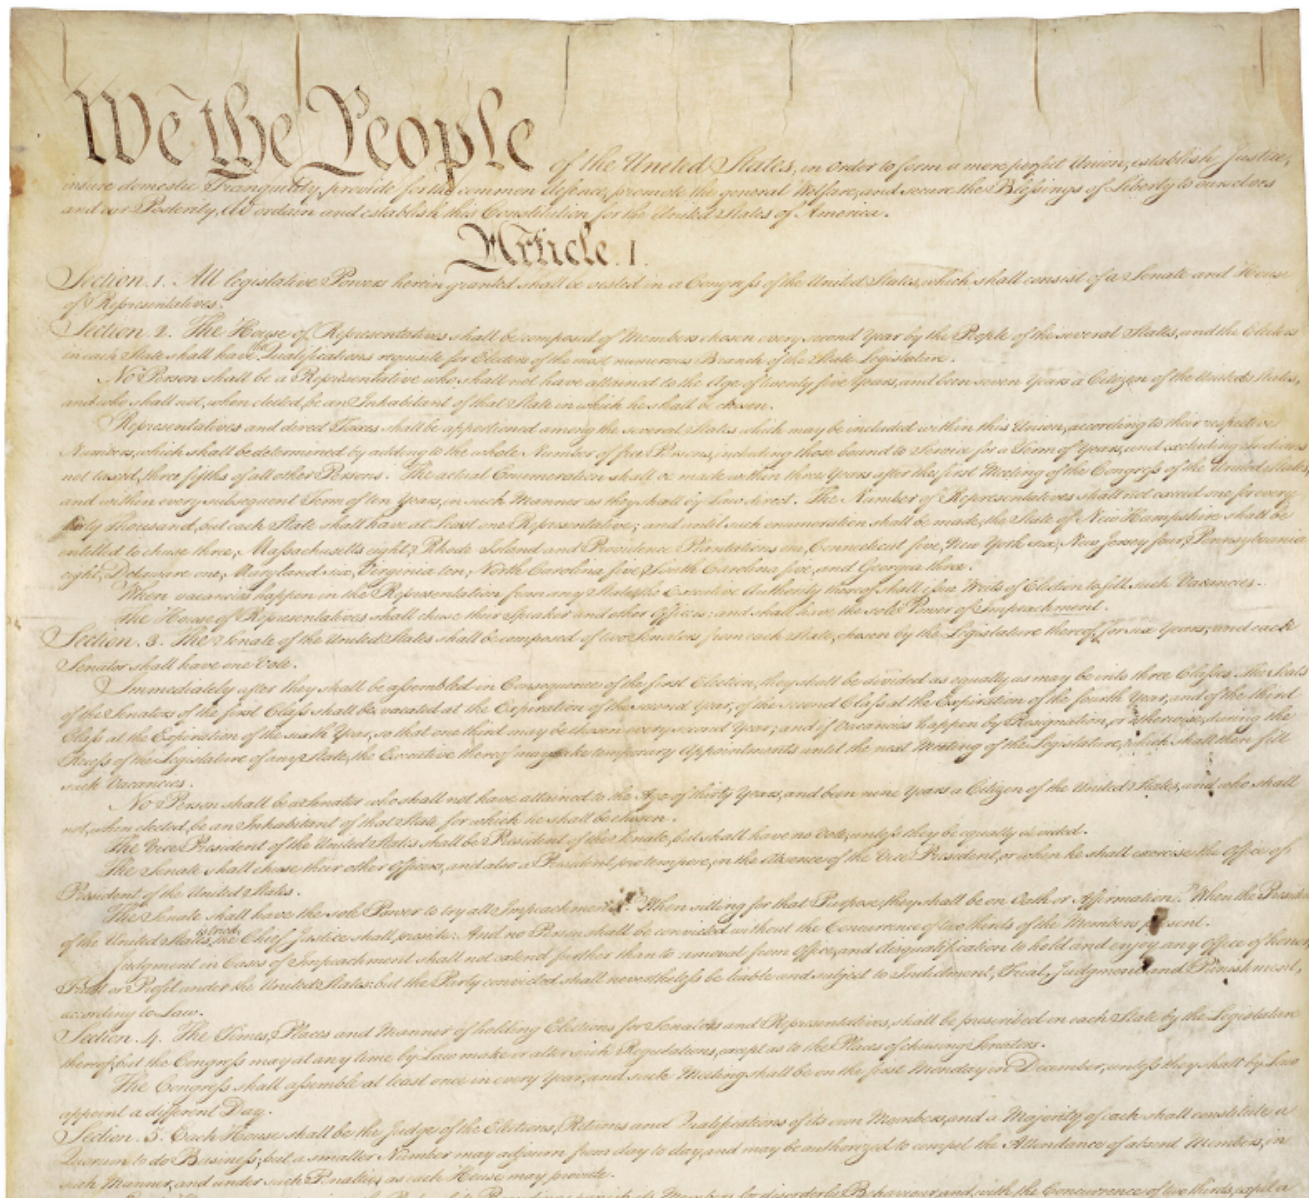 We the People of the United States, in Order to form a more perfect Union, establish Justice,
insure domestic Tranquility, provide for the common defence, promote the general Welfare, and secure the Blessings of Liberty to ourselves
and our Posterity, do ordain and establish this Constitution for the United States of America.
Article. I.
Section. 1. All legislative Powers herein granted shall be vested in a Congress of the United States, which shall consist of a Senate and House
of Representatives.
Section. 2. The House of Representatives shall be composed of Members chosen every second Year by the People of the several States, and the Electors
in each State shall have the Qualifications requisite for Electors of the most numerous Branch of the State Legislature.
No Person shall be a Representative who shall not have attained to the Age of twenty five Years, and been seven Years a Citizen of the United States,
and who shall not, when elected, be an Inhabitant of that State in which he shall be chosen.
Representatives and direct Taxes shall be apportioned among the several States which may be included within this Union, according to their respective
Numbers, which shall be determined by adding to the whole Number of free Persons, including those bound to Service for a Term of Years, and excluding Indians
not taxed, three fifths of all other Persons. The actual Enumeration shall be made within three Years after the first Meeting of the Congress of the United States,
and within every subsequent Term of ten Years, in such Manner as they shall by Law direct. The Number of Representatives shall not exceed one for every
thirty Thousand, but each State shall have at Least one Representative; and until such enumeration shall be made, the State of New Hampshire shall be
entitled to chuse three, Massachusetts eight, Rhode Island and Providence Plantations one, Connecticut five, New York six, New Jersey four, Pennsylvania
eight, Delaware one, Maryland six, Virginia ten, North Carolina five, South Carolina five, and Georgia three.
When vacancies happen in the Representation from any State, the Executive Authority thereof shall issue Writs of Election to fill such Vacancies.
The House of Representatives shall chuse their Speaker and other Officers; and shall have the sole Power of Impeachment.
Section. 3. The Senate of the United States shall be composed of two Senators from each State, chosen by the Legislature thereof, for six Years; and each
Senator shall have one Vote.
Immediately after they shall be assembled in Consequence of the first Election, they shall be divided as equally as may be into three Classes. The Seats
of the Senators of the first Class shall be vacated at the Expiration of the second Year, of the second Class at the Expiration of the fourth Year, and of the third
Class at the Expiration of the sixth Year, so that one third may be chosen every second Year; and if Vacancies happen by Resignation, or otherwise, during the
Recess of the Legislature of any State, the Executive thereof may make temporary Appointments until the next Meeting of the Legislature, which shall then fill
such Vacancies.
No Person shall be a Senator who shall not have attained to the Age of thirty Years, and been nine Years a Citizen of the United States, and who shall
not, when elected, be an Inhabitant of that State for which he shall be chosen.
The Vice President of the United States shall be President of the Senate, but shall have no Vote, unless they be equally divided.
The Senate shall chuse their other Officers, and also a President pro tempore, in the Absence of the Vice President, or when he shall exercise the Office of
President of the United States.
The Senate shall have the sole Power to try all Impeachments. When sitting for that Purpose, they shall be on Oath or Affirmation. When the President
of the United States is tried, the Chief Justice shall preside: And no Person shall be convicted without the Concurrence of two thirds of the Members present.
Judgment in Cases of Impeachment shall not extend further than to removal from Office, and disqualification to hold and enjoy any Office of honor,
Trust or Profit under the United States: but the Party convicted shall nevertheless be liable and subject to Indictment, Trial, Judgment and Punishment,
according to Law.
Section. 4. The Times, Places and Manner of holding Elections for Senators and Representatives, shall be prescribed in each State by the Legislature
thereof; but the Congress may at any time by Law make or alter such Regulations, except as to the Places of chusing Senators.
The Congress shall assemble at least once in every Year, and such Meeting shall be on the first Monday in December, unless they shall by Law
appoint a different Day.
Section. 5. Each House shall be the Judge of the Elections, Returns and Qualifications of its own Members, and a Majority of each shall constitute a
Quorum to do Business; but a smaller Number may adjourn from day to day, and may be authorized to compel the Attendance of absent Members, in
such Manner, and under such Penalties as each House may provide.